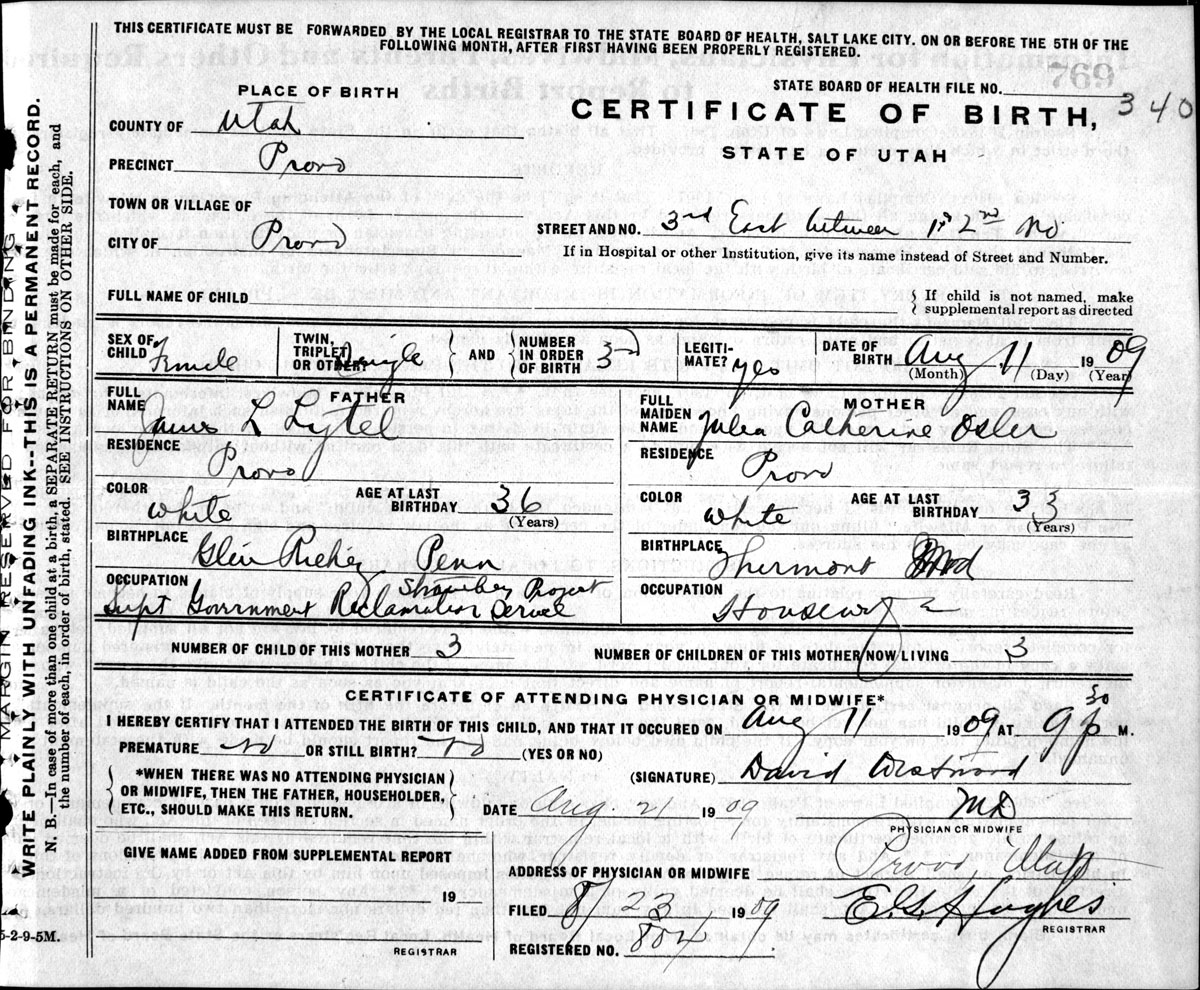 THIS CERTIFICATE MUST BE FORWARDED BY THE LOCAL REGISTRAR TO THE STATE BOARD OF HEALTH, SALT LAKE CITY. ON OR BEFORE THE 5TH OF THE
FOLLOWING MONTH, AFTER FIRST HAVING BEEN PROPERLY REGISTERED.
PLACE OF BIRTH
STATE BOARD OF HEALTH FILE NO. 340
CERTIFICATE OF BIRTH,
STATE OF UTAH
COUNTY OF Utah
PRECINCT Provo
TOWN OR VILLAGE OF
CITY OF Provo
STREET AND NO. 3rd East between 1st 2nd No
If in Hospital or other Institution, give its name instead of Street and Number.
FULL NAME OF CHILD
If child is not named, make
supplemental report as directed
SEX OF CHILD Female
TWIN, TRIPLET OR OTHER? Single
AND
NUMBER IN ORDER OF BIRTH 3
LEGITIMATE? yes
DATE OF BIRTH Aug 11 1909
(Month) (Day) (Year)
FATHER
FULL NAME James L Lytel
RESIDENCE Provo
COLOR White
AGE AT LAST BIRTHDAY 36
(Years)
BIRTHPLACE Glen Richey Penn
OCCUPATION Supt Government Reclamation Service
Project
MOTHER
FULL MAIDEN NAME Julia Catherine Osler
RESIDENCE Provo
COLOR White
AGE AT LAST BIRTHDAY 33
(Years)
BIRTHPLACE Thurmont Md
OCCUPATION Housewife
NUMBER OF CHILD OF THIS MOTHER 3
NUMBER OF CHILDREN OF THIS MOTHER NOW LIVING 3
CERTIFICATE OF ATTENDING PHYSICIAN OR MIDWIFE*
I HEREBY CERTIFY THAT I ATTENDED THE BIRTH OF THIS CHILD, AND THAT IT OCCURED ON Aug 11 1909 AT 9 30 P M.
PREMATURE No OR STILL BIRTH? No (YES OR NO)
*WHEN THERE WAS NO ATTENDING PHYSICIAN
OR MIDWIFE, THEN THE FATHER, HOUSEHOLDER,
ETC., SHOULD MAKE THIS RETURN.
(SIGNATURE) David Westwood
MD
PHYSICIAN OR MIDWIFE
DATE Aug 1909
GIVE NAME ADDED FROM SUPPLEMENTAL REPORT
19
REGISTRAR
ADDRESS OF PHYSICIAN OR MIDWIFE Provo, Utah
FILED 8 23 1909
E. G. Hughes
REGISTRAR
REGISTERED NO. 804
5-2-9-5M.
MARGIN RESERVED FOR BINDING
WRITE PLAINLY WITH UNFADING INK--THIS IS A PERMANENT RECORD.
N. B.—In case of more than one child at a birth, a SEPARATE RETURN must be made for each, and
the number of each, in order of birth, stated. SEE INSTRUCTIONS ON OTHER SIDE.